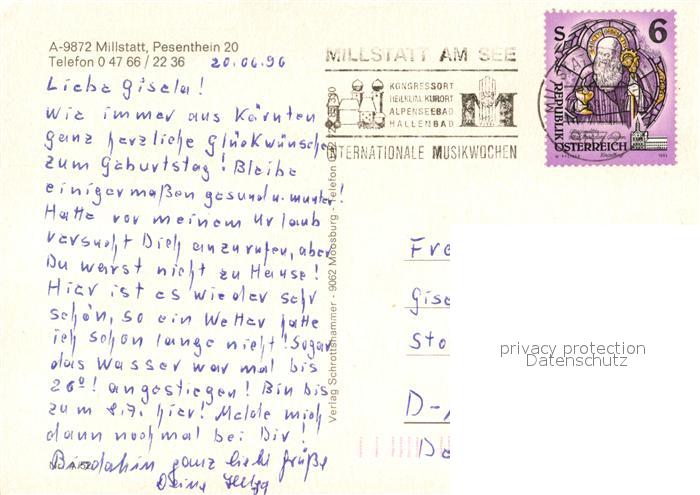 A-9872 Millstatt, Pesenthein 20
Telefon 0 47 66 / 22 36
20.06.96
Liebe Gisela!
Wie immer aus Kärnten
ganz herzliche Glückwünsche
zum Geburtstag! Bleibe
einigermaßen gesund u. munter!
Hatte vor meinem Urlaub
versucht Dich anzurufen, aber
Du warst nicht zu Hause!
Hier ist es wieder sehr
schön, so ein Wetter hatte
ich schon lange nicht! Sogar
das Wasser war mal bis
26°! angestiegen! Bin bis
zum 8.7. hier! Melde mich
dann nochmal bei Dir!
Bis dahin ganz liebe Grüße
Deine Helga
Verlag Schrottshammer - 9062 Moosburg - Telefon
MILLSTATT AM SEE
KONGRESSORT
HEILKLIM. KURORT
ALPENSEEBAD
HALLENBAD
M
INTERNATIONALE MUSIKWOCHEN
S 6
REPUBLIK
ÖSTERREICH
Fra
Gise
Sto
D-
privacy protection
Datenschutz